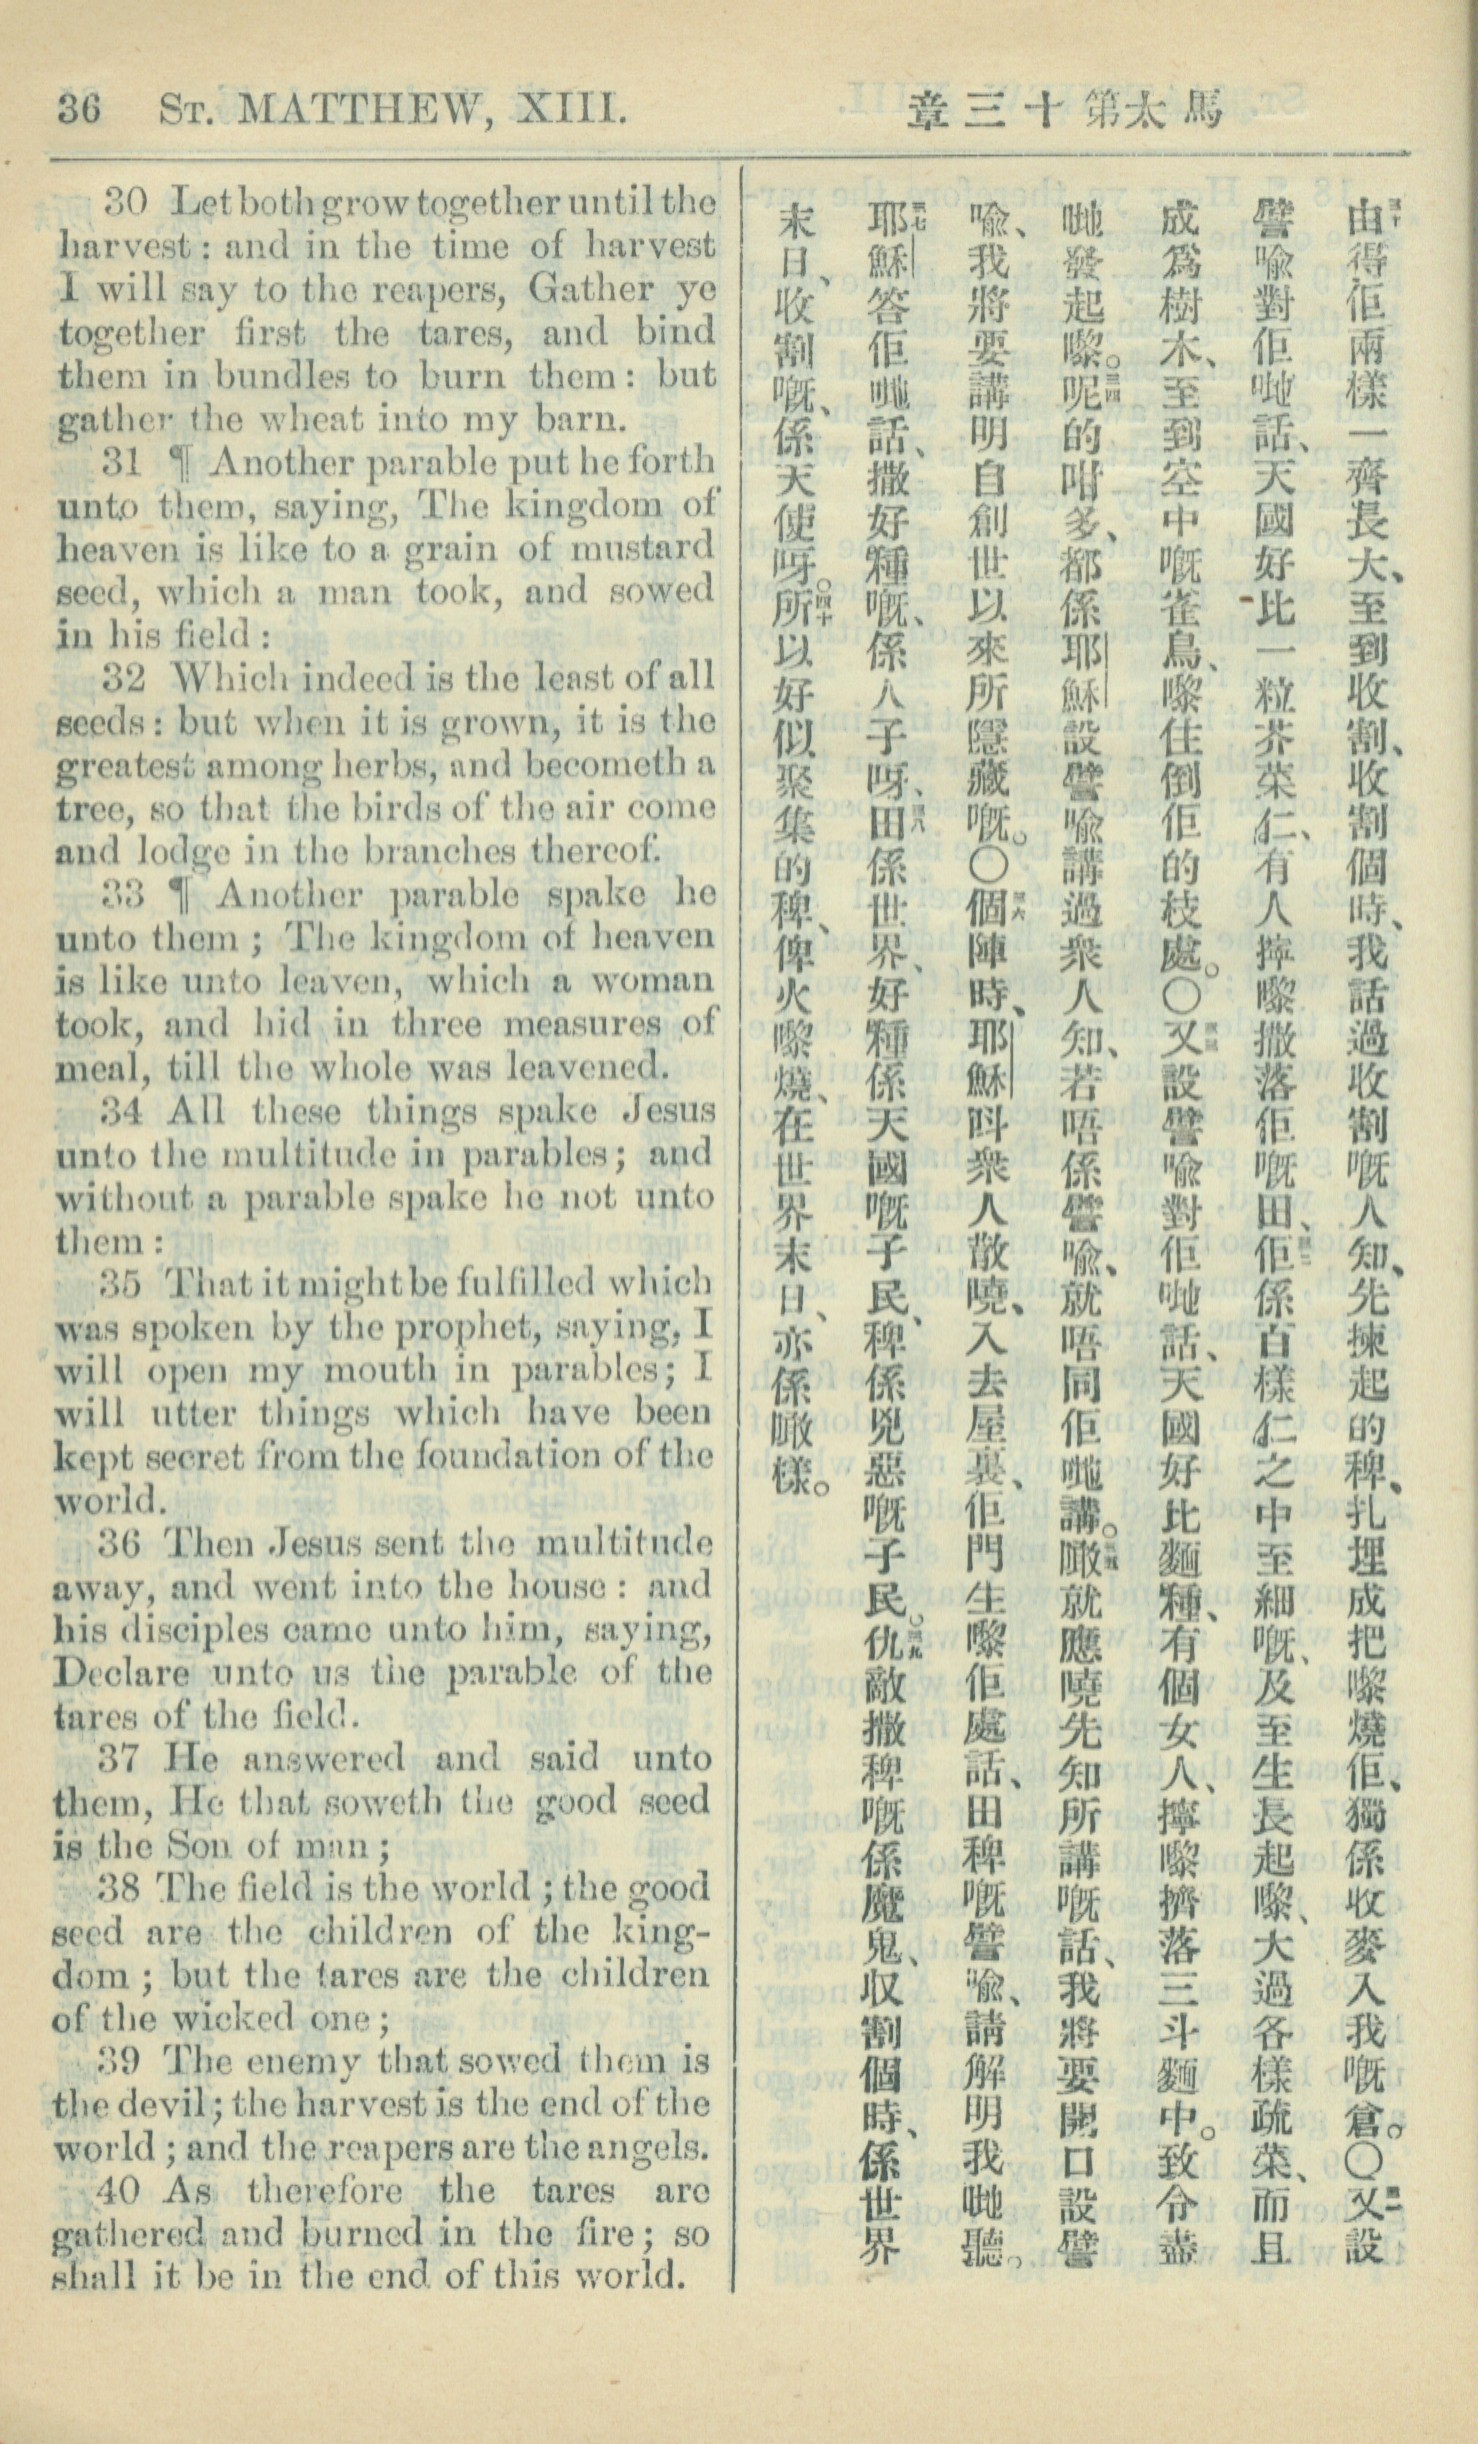 36 St. MATTHEW, XIII.
馬太第十三章
30 Let both grow together until the
harvest: and in the time of harvest
I will say to the reapers, Gather ye
together first the tares, and bind
them in bundles to burn them: but
gather the wheat into my barn.
31 ¶ Another parable put he forth
unto them, saying, The kingdom of
heaven is like to a grain of mustard
seed, which a man took, and sowed
in his field:
32 Which indeed is the least of all
seeds: but when it is grown, it is the
greatest among herbs, and becometh a
tree, so that the birds of the air come
and lodge in the branches thereof.
33 ¶ Another parable spake he
unto them; The kingdom of heaven
is like unto leaven, which a woman
took, and hid in three measures of
meal, till the whole was leavened.
34 All these things spake Jesus
unto the multitude in parables; and
without a parable spake he not unto
them:
35 That it might be fulfilled which
was spoken by the prophet, saying, I
will open my mouth in parables; I
will utter things which have been
kept secret from the foundation of the
world.
36 Then Jesus sent the multitude
away, and went into the house: and
his disciples came unto him, saying,
Declare unto us the parable of the
tares of the field.
37 He answered and said unto
them, He that soweth the good seed
is the Son of man;
38 The field is the world; the good
seed are the children of the king-
dom; but the tares are the children
of the wicked one;
39 The enemy that sowed them is
the devil; the harvest is the end of the
world; and the reapers are the angels.
40 As therefore the tares are
gathered and burned in the fire; so
shall it be in the end of this world.
三十由得佢兩樣一齊長大、至到收割、收割個時、我話過收割嘅人知、先揀起的稗、扎埋成把嚟燒佢、獨係收麥入我嘅倉。〇三一又設
譬喩對佢哋話、天國好比一粒芥菜仁、有人擰嚟撒落佢嘅田、三二佢係百樣仁之中至細嘅、及至生長起嚟、大過各樣疏菜、而且
成爲樹木、至到空中嘅雀鳥、嚟住倒佢的枝處。〇三三又設譬喩對佢哋話、天國好比麵種、有個女人、擰嚟擠落三斗麵中。致令盡
哋發起嚟。〇三四呢的咁多、都係耶穌設譬喩講過衆人知、若唔係譬喩、就唔同佢哋講。〇三五噉就應曉先知所講嘅話、我將要開口設譬
喩、我將要講明自創世以來所隱藏嘅。〇三六個陣時、耶穌呌衆人散曉、入去屋裏、佢門生嚟佢處話、田稗嘅譬喩、請解明我哋聽。
三七耶穌答佢哋話、撒好種嘅、係人子呀、三八田係世界、好種係天國嘅子民、稗係兇惡嘅子民。〇三九仇敵撒稗嘅係魔鬼、収割個時、係世界
末日、收割嘅、係天使呀。〇四十所以好似聚集的稗、俾火嚟燒、在世界末日、亦係噉樣。